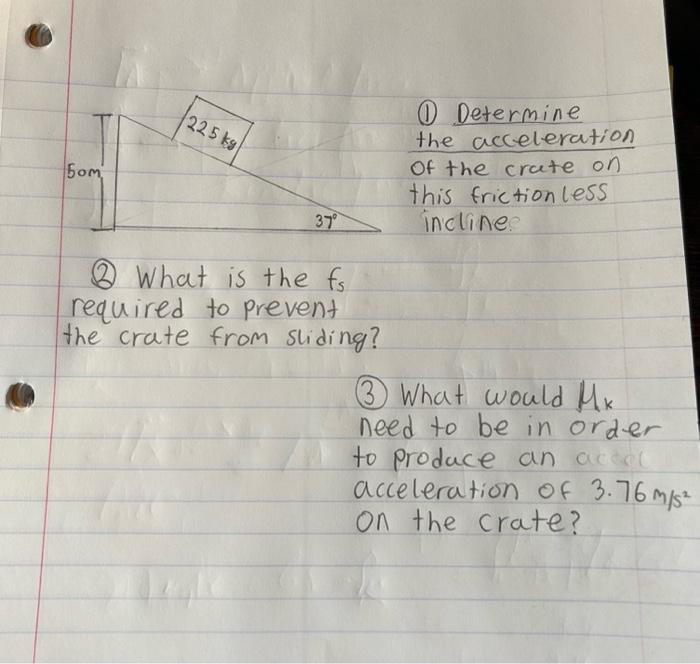 ① Determine
the acceleration
of the crate on
this frictionless
incline
225 kg
50m
37°
② What is the fs
required to prevent
the crate from sliding?
③ What would μk
need to be in order
to produce an accel
acceleration of 3.76 m/s²
on the crate?